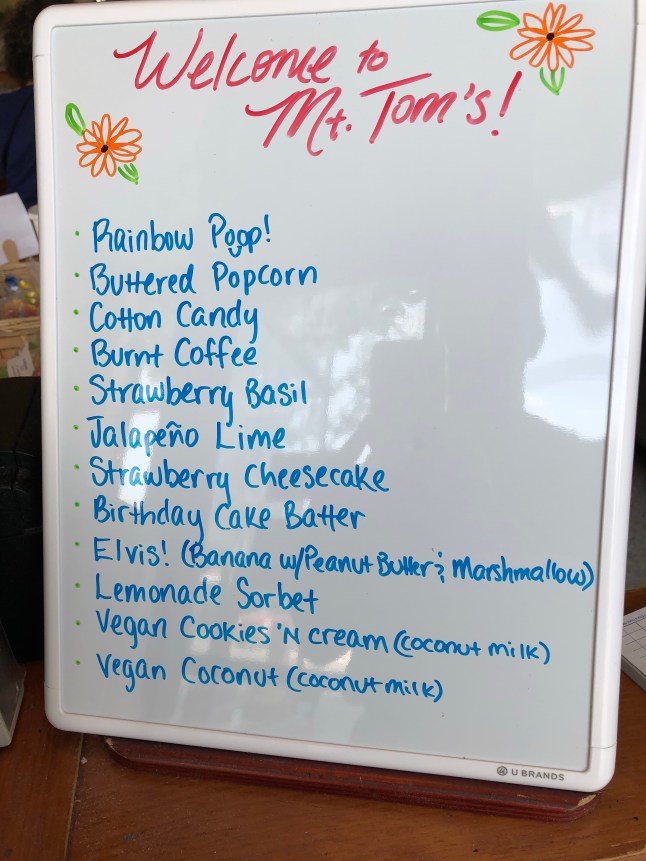 Welcome to
Mt. Tom's!
· Rainbow Poop!
· Buttered Popcorn
· Cotton Candy
· Burnt Coffee
· Strawberry Basil
· Jalapeño Lime
· Strawberry Cheesecake
· Birthday Cake Batter
· Elvis! (Banana w/Peanut Butter & Marshmallow)
· Lemonade Sorbet
· Vegan Cookies 'N cream (coconut milk)
· Vegan Coconut (coconut milk)
U BRANDS